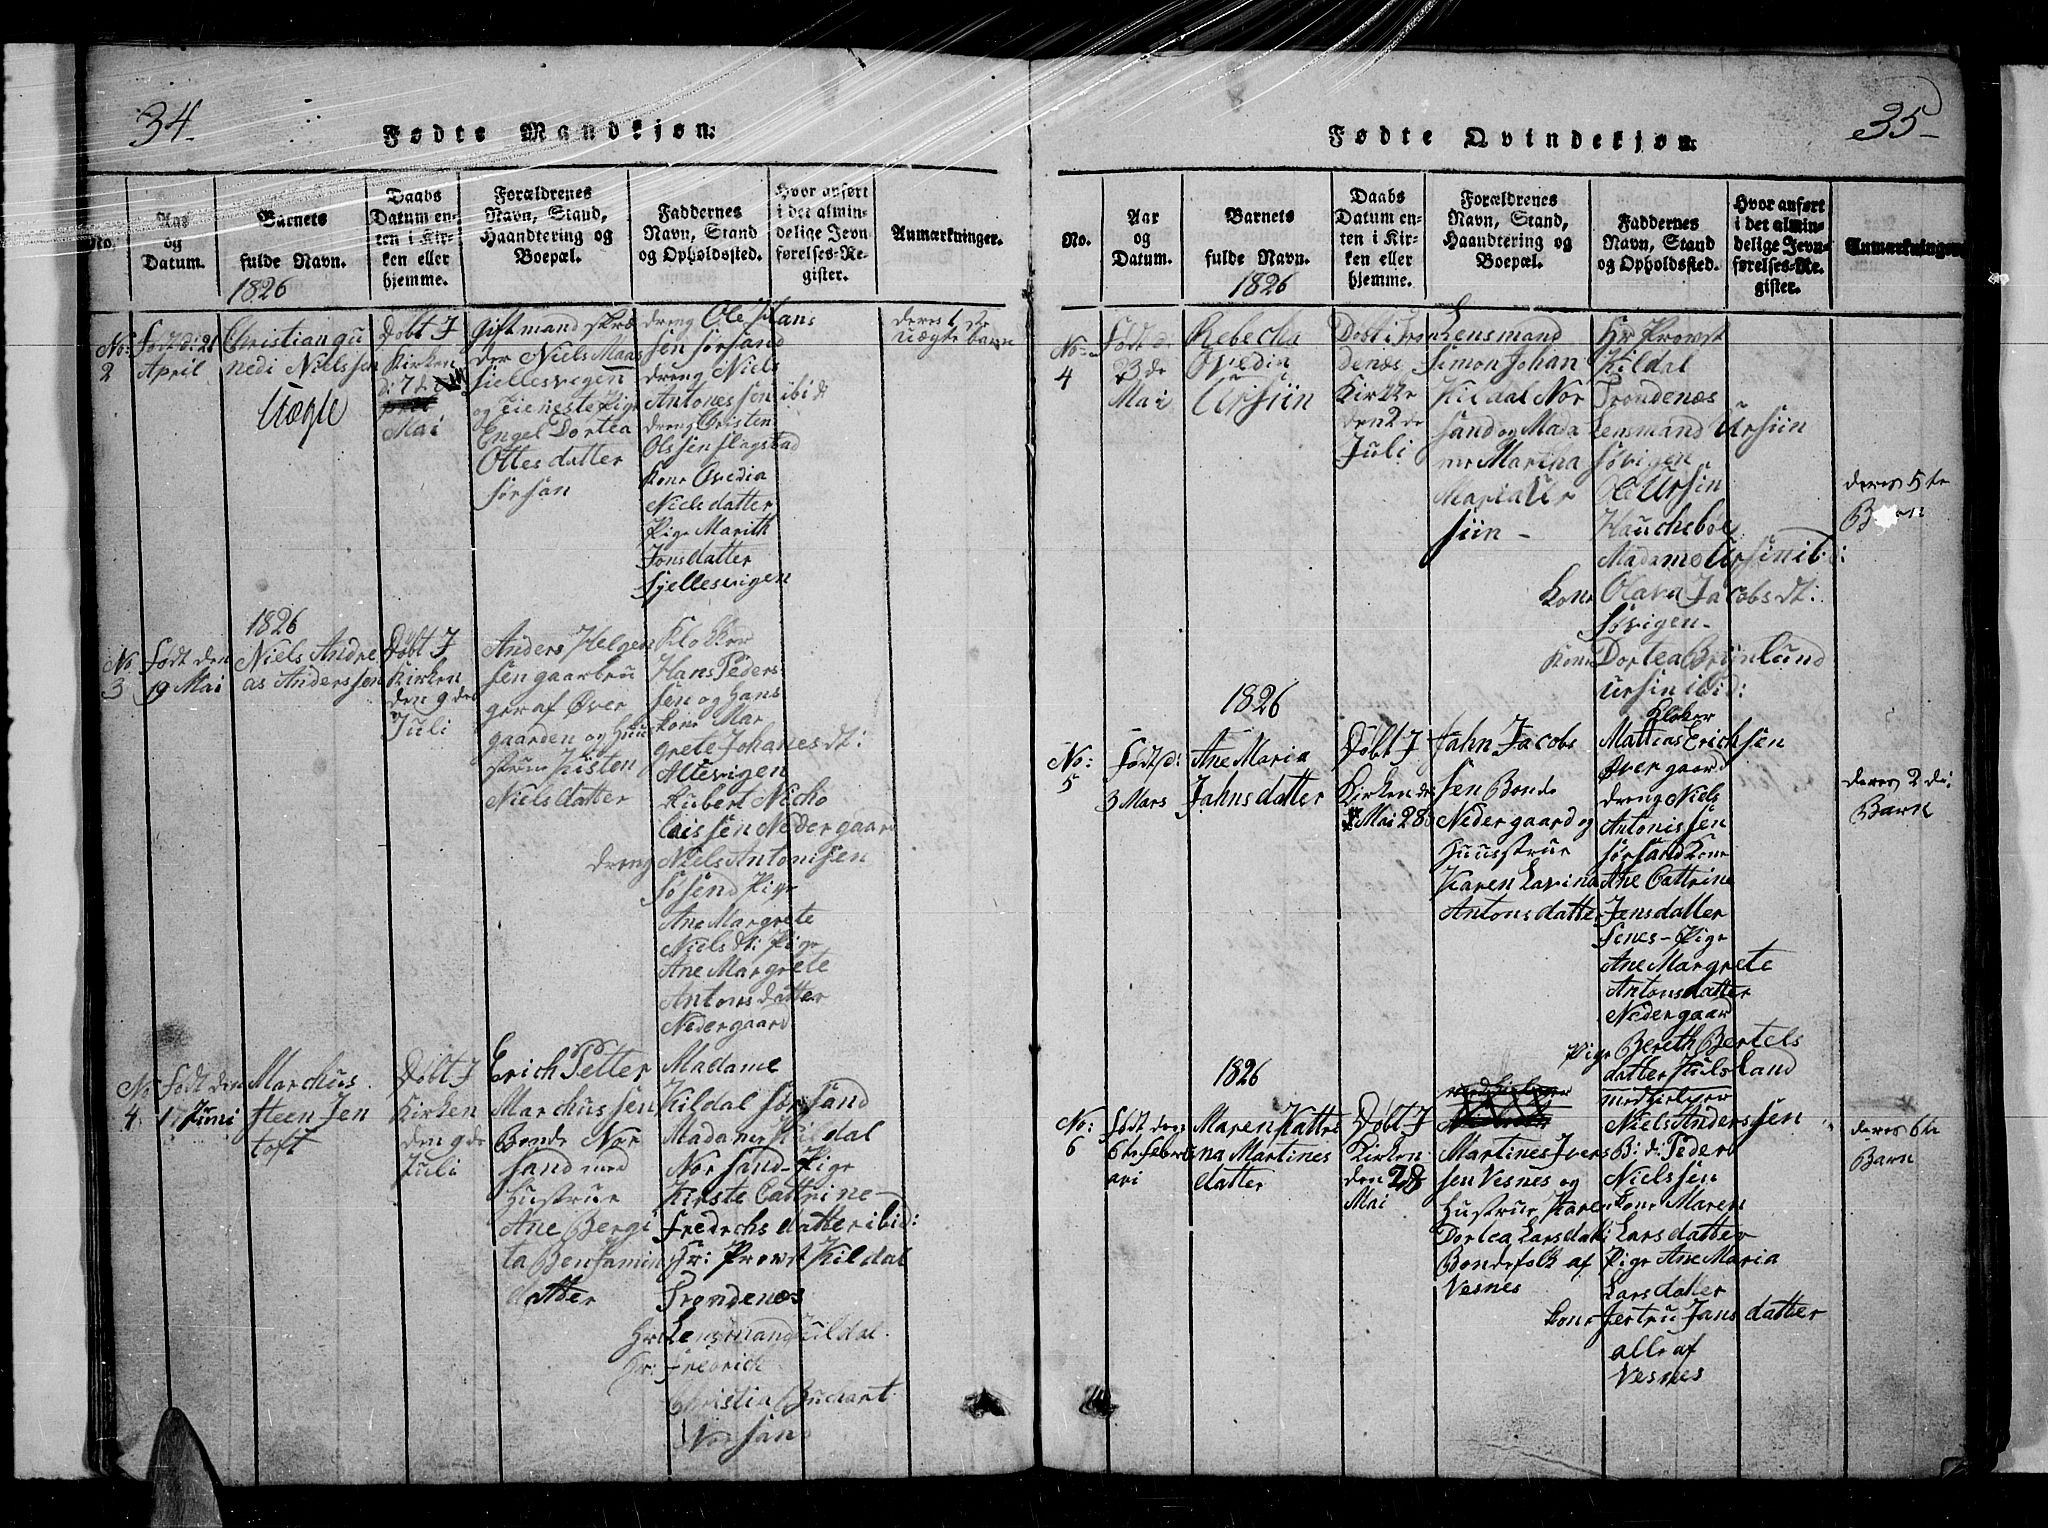 34
Fødte Mandkjøn.
No.
Aar
og
Datum.
Barnets
fulde Navn.
1826
Daabs
Datum en-
ten i Kir-
ken eller
hjemme.
Forældrenes
Navn, Stand,
Haandtering og
Boepæl.
Faddernes
Navn, Stand
og Opholdssted.
Hvor anført
i det almin-
delige Jevn-
førelses-Re-
gister.
Anmærkninger.
No:
2
Født d: 21
April
Christian gu
nedi Nielssen
Uægte
Døbt I
Kirken
d: 7 de
Mai
giftmand skræ
der Niels Maas
fjellesvigen
og Tieneste Pige
Engel Dortea
Ottes datter
sørsan
dreng Ole Hans
sen sørsand
dreng Niels
Antones sen ibid
dreng Cristen
Olssen slagstad
Kone Ovedia
Niels datter
Pige Marith
Jonsdatter
fjellesvigen
deres 1 ste
uægte barn
1826
No
3
Født den
19 Mai
Niels Andre
as Anderssen
Døbt I
Kirken
den 9 de
Juli
Anders Helge
sen gaarbru
ger af Øver
gaarden og Huu
strue Kisten
Niels datter
Klokker
Hans Peders
sen og hans
kone Mar
grete Johanes dt:
Altevigen
Hubert Nicho
laissen Nedergaard
dreng Niels Antonisen
sørsend Pige
Ane Margrete
Niels dt: Pige
Ane Margrete
Antons datter
Nedergaard
No
4
Født den
17 Juni
Marchus
Steen Jen
toft
Døbt I
Kirken
den 9 de
Juli
Erich Petter
Marchussen
Bonde Nor
sand med
Hustrue
Ane Bergi
ta Benjamin
datter
Madame
Kildal sørsand
Madame Kildal
Norsand - Pige
Kirste Cattrine
Fredrchs datter ibid:
Hr: Provst Kildal
Trondenæs
Hr Lensmand Kildal
Hr: Fredrich
Christian Buchart
Norsan
35
Fødte Qvindekjøn.
No.
Aar
og
Datum.
Barnets
fulde Navn.
1826
Daabs
Datum en-
ten i Kir-
ken eller
hjemme.
Forældrenes
Navn, Stand,
Haandtering og
Boepæl.
Faddernes
Navn, Stand
og Opholdssted.
Hvor anført
i det almin-
delige Jevn-
førelses-Re-
gister.
Anmærkninger
No:
4
Født d:
23 de
Mai
Rebecha
Ovedia
Ursiin
Døbt i Tron
denæs
Kirke
den 2 de
Juli
Lensmand
Simon Johan
Kildal Nor
sand og Mada
me Martha
Maria Ur
siin -
Hr Provst
Kildal
Trondenæs
Lensmand Ursiin
Søvigen
Ole Ursin
Hauchebøe
Madame Ursin ibid:
Kone Olava Jacobs dt:
Søvigen -
Kone Dortea Brynlund
Ursin ibid:
deres 5 te
Barn
1826
No:
5
Født d:
3 Mars
Ane Maria
Jahns datter
Døbt I
Kirken d:
Mai 28
Jahn Jacobs
sen Bonde
Nedergaard og
Huusstrue
Karen Lavina
Antons datter
Kloker
Mattias Erichsen
Øvergaard
dreng Niels
Antonissen
sørsand Kone
Ane Cattrine
Jensdatter
senes - Pige
Ane Margrete
Antonsdatter
Nedergaar
Pige Bereth Bertels
datter
deres 2 de:
Barn
1826
No:
6
Født den
6te Febru
ari
Maren Kattri
na Martines
datter
Døbt I
Kirken
den 28
Mai
Martines Ivers
sen Vesnes og
Hustrue Karen
Dortea Larsdat:
Bondefolk af
Vesnes
medhielper
Niels Anderssen
B: d: Peder
Nielssen
Kone Maren
Larsdatter
Pige Ane Maria
Larsdatter
Kone Jertru Jans datter
alle af
Vesnes
deres 6te
Barn